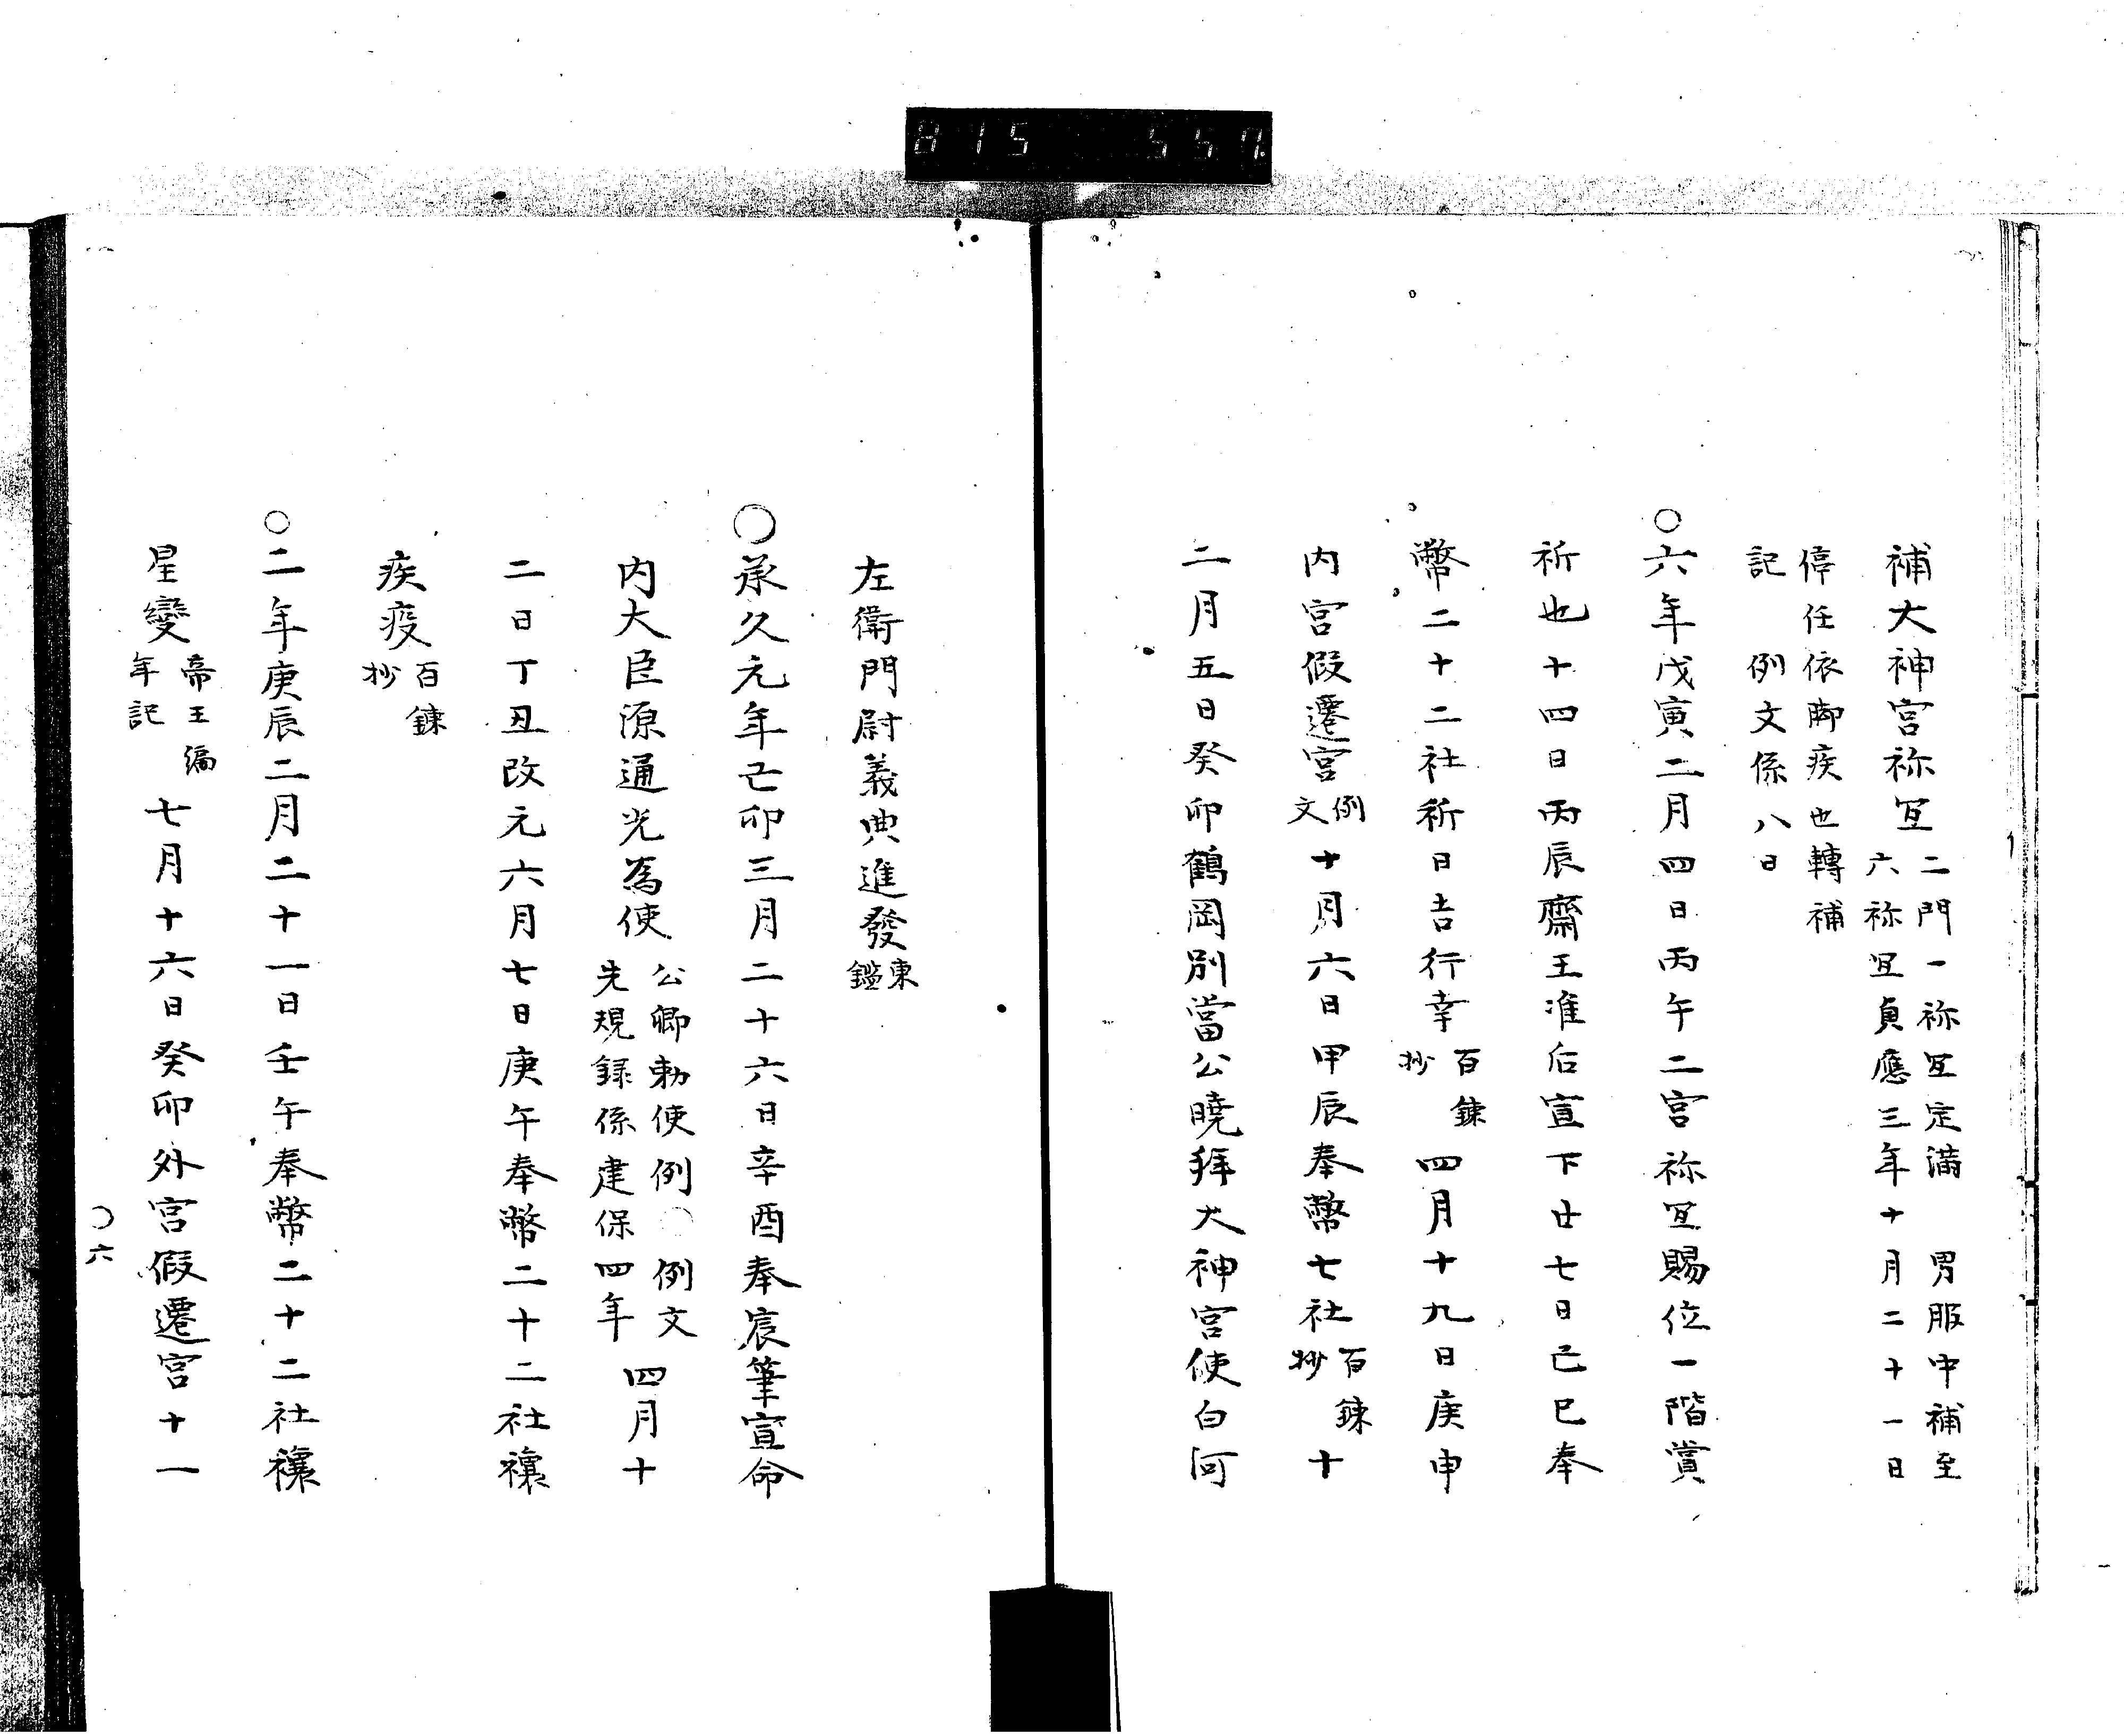 815 557
補大神宮祢冝二門一祢冝定満 男服中補至
六祢冝貞應三年十月二十一日
停任依脚疾也轉補
記 例文係八日
○六年戊寅二月四日丙午二宮祢冝賜位一階賞
祈也十四日丙辰齋王准后宣下廿七日己巳奉
幣二十二社祈日吉行幸百錬抄四月十九日庚申
内宮假遷宮例文十月六日甲辰奉幣七社百錬抄十
二月五日癸卯鶴岡別當公曉拜大神宮使白河
左衛門尉義典進發東鑑
○承久元年己卯三月二十六日辛酉奉宸筆宣命
内大臣源通光為使公卿勅使例○例文
先規録係建保四年四月十
二日丁丑改元六月七日庚午奉幣二十二社禳
疾疫百錬抄
○二年庚辰二月二十一日壬午奉幣二十二社禳
星變帝王編年記七月十六日癸卯外宮假遷宮十一
○六